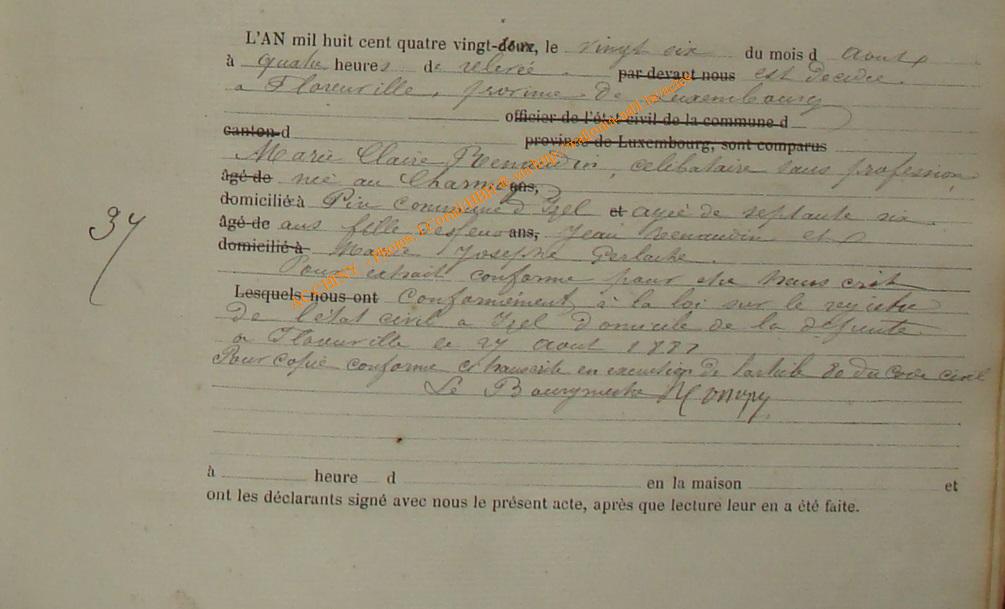 L'AN mil huit cent quatre vingt-deux, le vingt six du mois d Aout
à quatre heures de relevée. par devant nous est décédée
a Florenville, province De Luxembourg
officier de l'état civil de la commune d
canton d province de Luxembourg, sont comparus
Marie Claire Renaudin, celibataire sans profession,
âgé de née au Charmois ans,
domicilié à Pin Commune d'Izel et agée de septante six
âgé de ans fille des feus ans, Jean Renaudin et
domicilié à Marie Josephe Gerlache.
Pour extrait conforme pour être transcrit
Lesquels nous ont Conformément à la loi sur le registre
De l'état civil a Izel Domicile de la défunte
a Florenville le 27 Aout 1887
Pour copie conforme et transcrite en execution de l'article 80 du code civil
Le Bourgmestre
37
à heure d en la maison et
ont les déclarants signé avec nous le présent acte, après que lecture leur en a été faite.